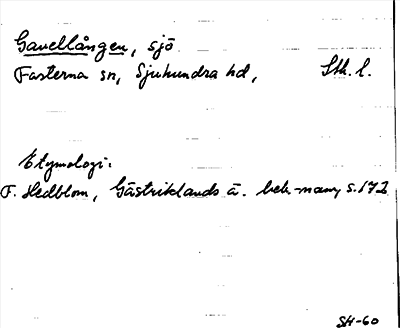 Gavellången, sjö
Fasterna sn, Sjuhundra hd, Sth. l.
Etymologi:
F. Hedblom, Gästriklands ä. beb-namn s. 172
SH-60